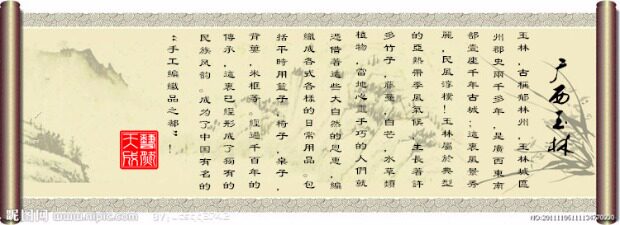 广西玉林
玉林，古稱郁林州，玉林城區
州郡史兩千多年，是廣西東南
部壹座千年古城；這裏風景秀
麗，民風淳樸！玉林屬於典型
的亞熱帶季風氣候，生長著許
多竹子，藤蔓，白芒，水草類
植物，當地心靈手巧的人們就
憑借著這些大自然的恩惠，編
織成各式各樣的日常用品。包
括平時用籃子，椅子，桌子，
背簍，米框等。經過千百年的
傳承，這裏已經形成了獨有的
民族风韵。成为了中国有名的
“手工編織品之都”！
藝術
天成
昵图网 www.nipic.com